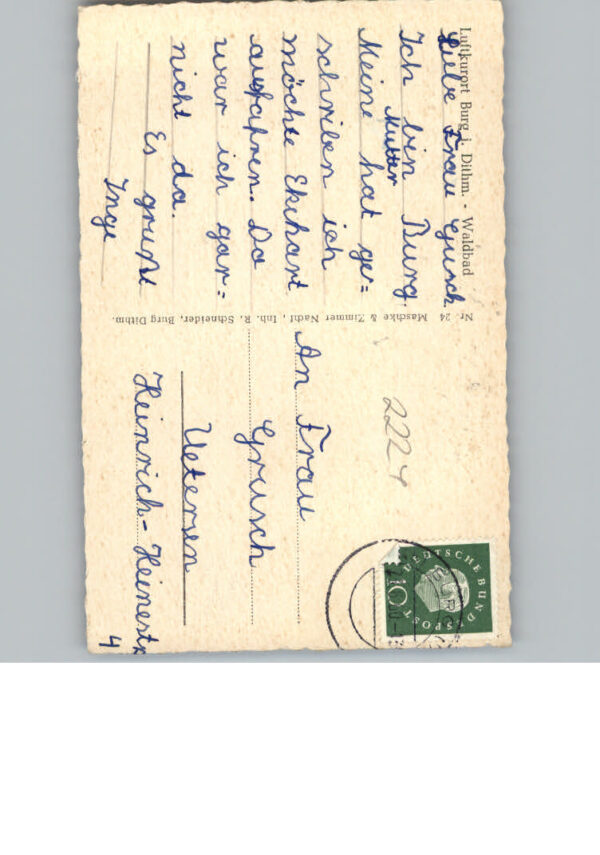 Luftkurort Burg i. Dithm. - Waldbad
Liebe Frau Grusch
Ich bin Burg.
Meine Mutter hat ge=
schriben ich
möchte Ekhart
ausfahren. Da
war ich gar=
nicht da.
Es grußt
Inge
Nr. 24 Maschke & Zimmer Nachf., Inh. R. Schneider, Burg Dithm.
2224
DEUTSCHE BUNDESPOST
10
BURG
An Frau
Grusch
Uetersen
Heinrich-Heinestr
4